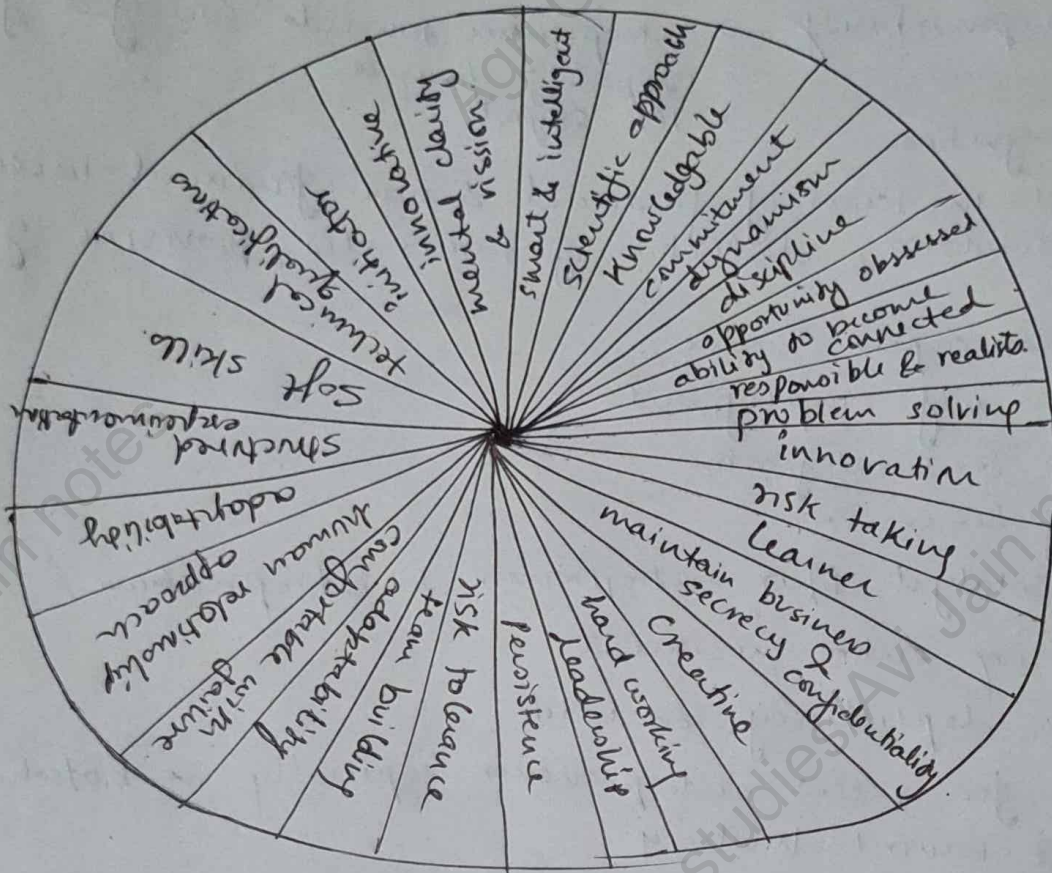 smart & intelligent
scientific approach
Knowledgable
commitment
dynamism
discipline
opportunity obssessed
ability to become
connected
responsible & realista
problem solving
innovatim
risk taking
learner
maintain business
secrecy &
confidentiality
Creatine
hard working
leadership
persistence
risk tolerance
team building
adaptability
comfortable with
failure
human relationship
approach
adaptability
structured
experimentation
Soft skills
technical
qualifications
initiator
innovative
mental clarity
& vision
Agri
m notes
studies Avi Jain n